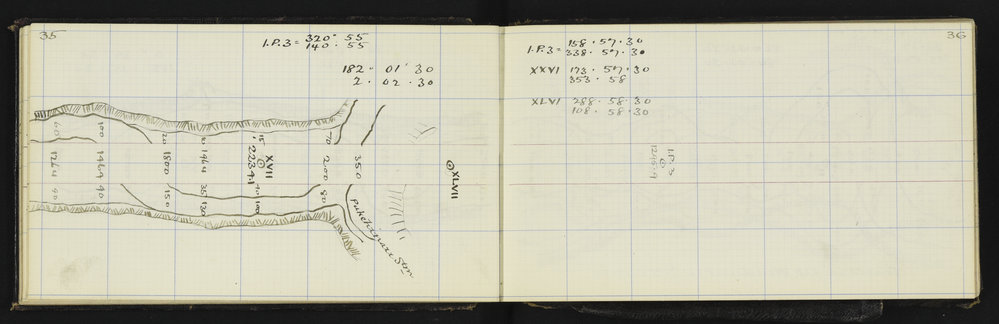 35
I.P.3 = 320° 55
140 . 55
182 . 01' 30
2 . 02 . 30
100
20
15
70
1264
1464
1800
1964
XVII
2234.1
200
350
XLVII
90
90
150
35
130
90
100
80
Stm
36
I.P.3 = 158 . 57 . 30
338 . 57 . 30
XXVI 173 . 57 . 30
353 . 58
XLVI 288 . 58 . 30
108 . 58 . 30
I.P.3
1246.9